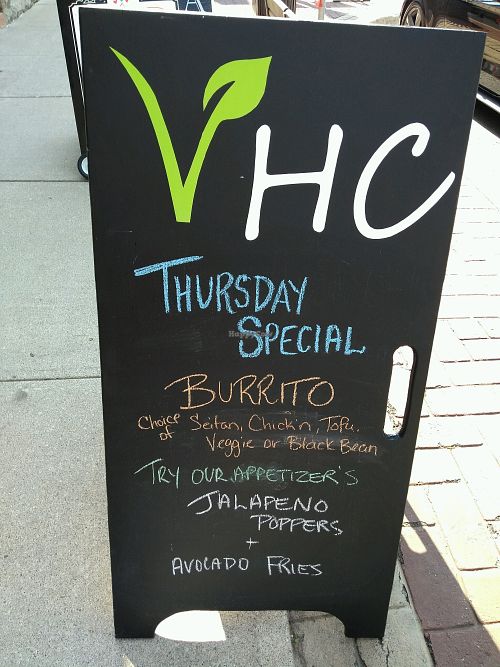 VHC
THURSDAY
SPECIAL
BURRITO
Choice of Seitan, Chick'n, Tofu,
Veggie or Black Bean
TRY OUR APPETIZER'S
JALAPENO
POPPERS
+
AVOCADO FRIES